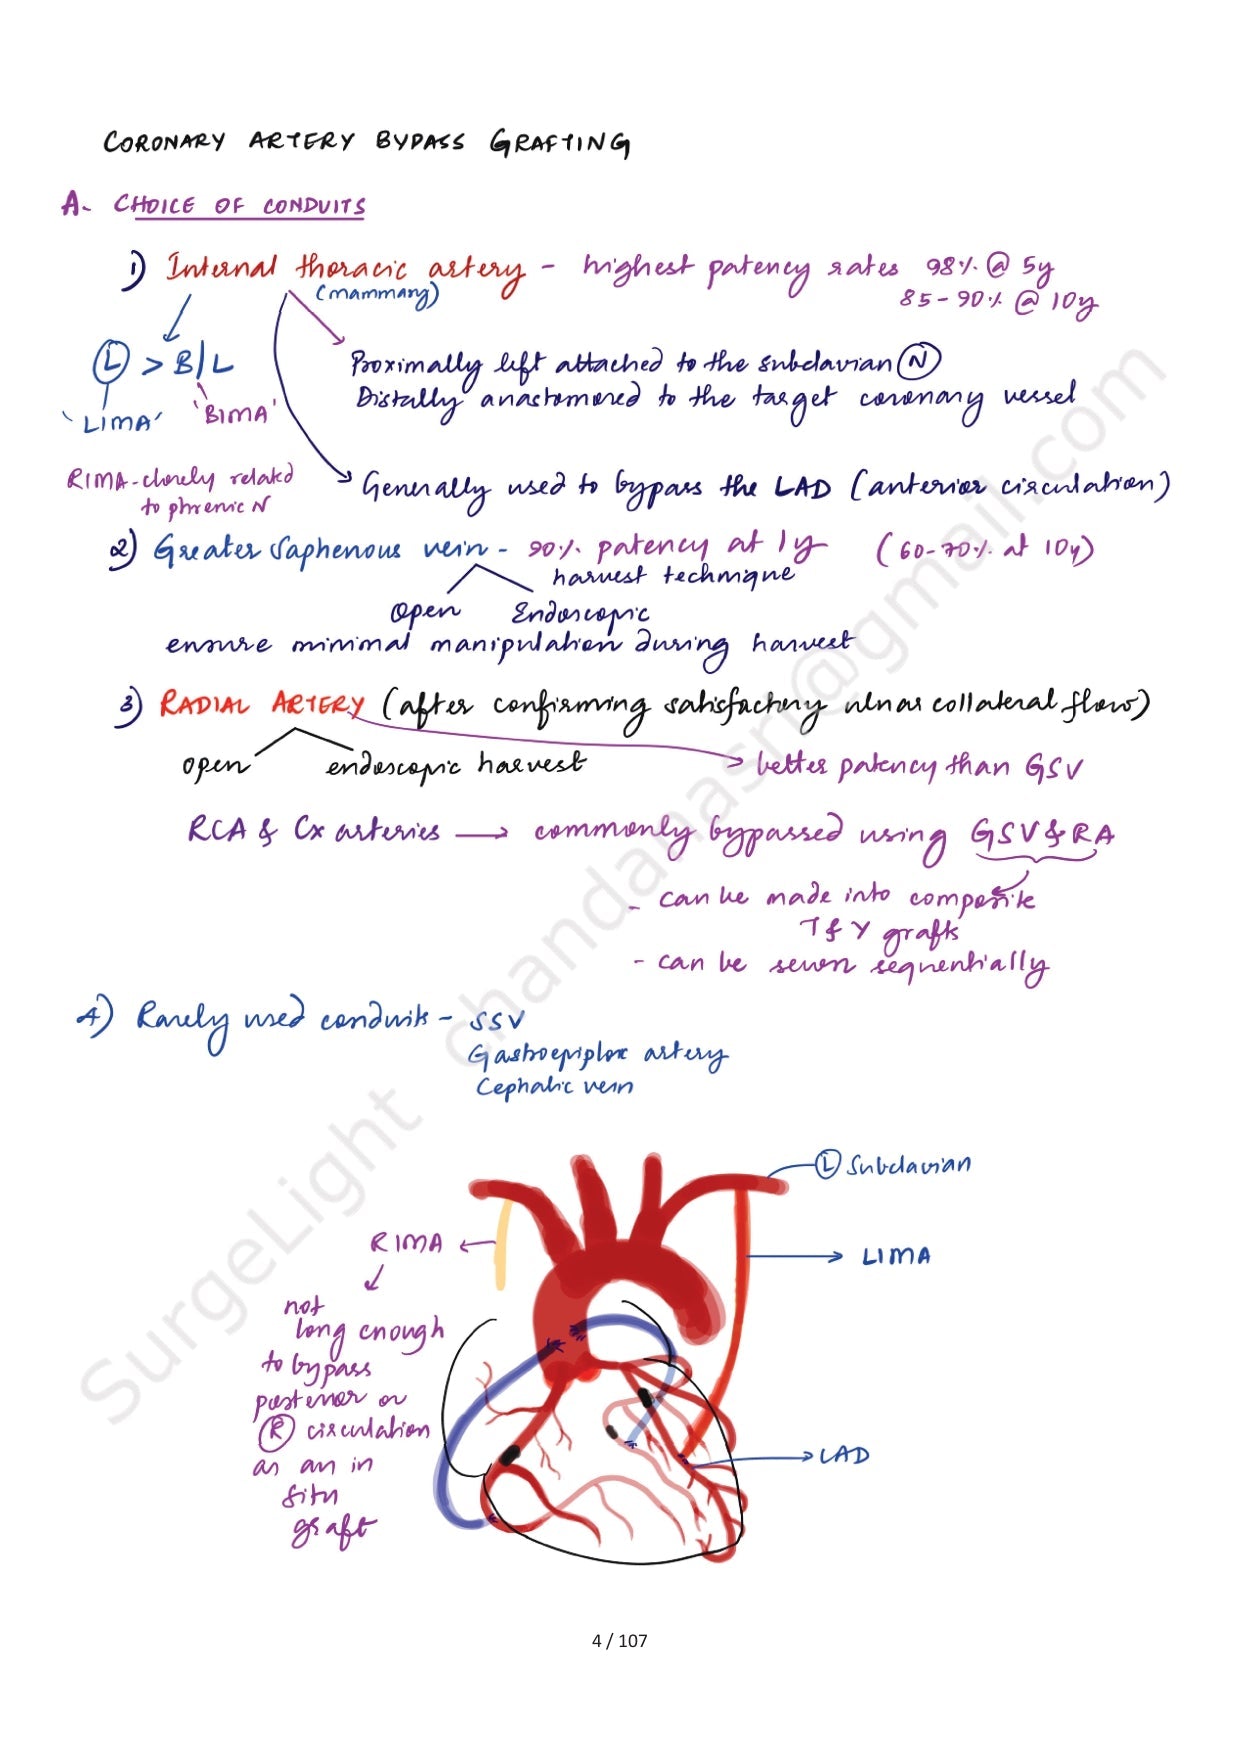 CORONARY ARTERY BYPASS GRAFTING
A- CHOICE OF CONDUITS
1) Internal thoracic artery - highest patency rates 98% @ 5y
(mammary)
85-90% @ 10y
(L) > B/L
'LIMA' 'BIMA'
Proximally left attached to the subclavian (N)
Distally anastomosed to the target coronary vessel
RIMA-closely related
to phrenic N
Generally used to bypass the LAD (anterior circulation)
2) Greater Saphenous vein - 90% patency at 1y (60-70% at 10y)
harvest technique
Open Endoscopic
ensure minimal manipulation during harvest
3) RADIAL ARTERY (after confirming satisfactory ulnar collateral flow)
open endoscopic harvest
better patency than GSV
RCA & Cx arteries → commonly bypassed using GSV & RA
- can be made into composite
T & Y grafts
- can be sewn sequentially
4) Rarely used conduits - SSV
Gastroepiploic artery
Cephalic vein
(L) Subclavian
RIMA
LIMA
not
long enough
to bypass
posterior or
(R) circulation
as an in
situ
graft
LAD
SurgeLight chandanasri@gmail.com
4 / 107